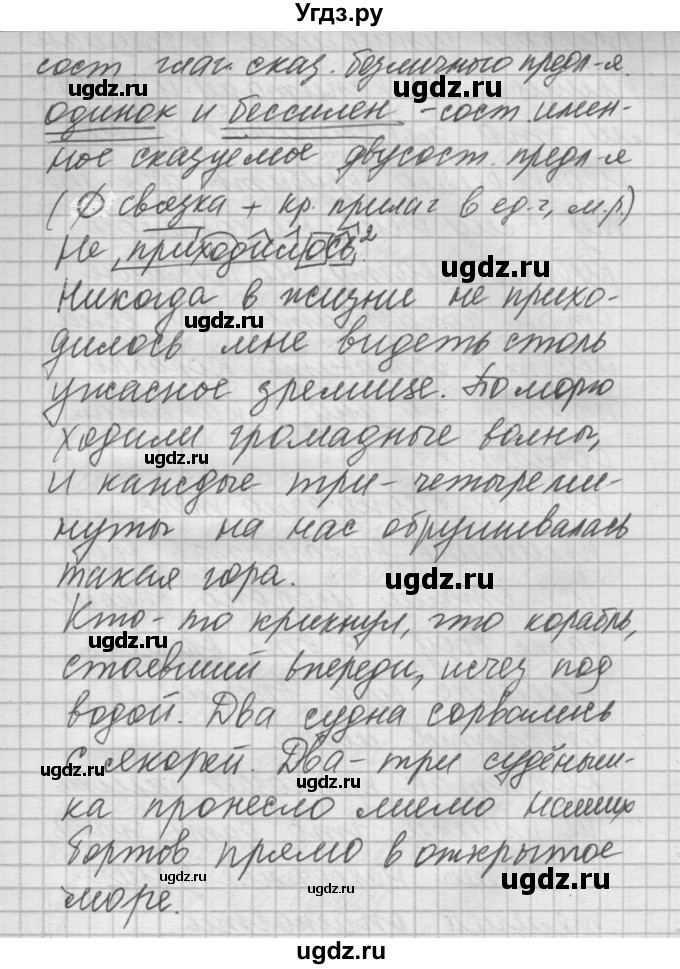 Угдз.ру
сост глаг. сказ. безличного предл-я.
ugdz.ru ugdz.ru
одинок и бессилен - сост. имен-
ugdz.ru
ное сказуемое двусост. предл-я
( ∅ связка + кр. прилаг в ед.ч, м.р.)
Не приходилось²
ugdz.ru
Никогда в жизни не прихо-
ugdz.ru
дилось мне видеть столь
ужасное зрелище. По морю
ходили громадные волны,
ugdz.ru
и каждые три-четыре ми-
нуты на нас обрушивалась
такая гора.
ugdz.ru
Кто-то крикнул, что корабль,
ugdz.ru
стоявший впереди, исчез под
водой. Два судна сорвались
с якорей. Два-три судёныш-
ugdz.ru ugdz.ru
ка пронесло мимо наших
бортов прямо в открытое
ugdz.ru ugdz.ru ugdz.ru
море.
ugdz.ru